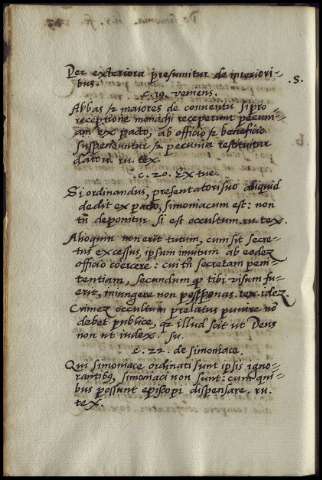 Per exteriora presumitur de interiori-
bus. .S.
c. 19. veniens.
Abbas et maiores de conventu si pro
receptione monachi receperunt pecuni-
am ex pacto, ab officio et beneficio
suspenduntur et pecunia restituitur
datori. ru. tex.
c. 20. Ex tue.
Si ordinandus, presentatori suo aliquid
dedit ex pacto, simoniacum est: non
tn deponitur si est occultum. ru. tex.
Alioquin non erit tutum, cum sit secre-
tus excessus, ipsum invitum ab eodem
officio coercere: cui tn secretam peni-
tentiam, secundum q tibi visum fu-
erit, iniungere non postponas. tex. idez.
Crimen occultum prelatus punire no
debet publice, qr illud scit ut Deus
non ut iudex. su.
c. 22. de simoniace
Qui simoniace ordinati sunt ipsis igno-
rantibus, simoniaci non sunt: cum qui-
bus possunt episcopi dispensare. ru.
tex.